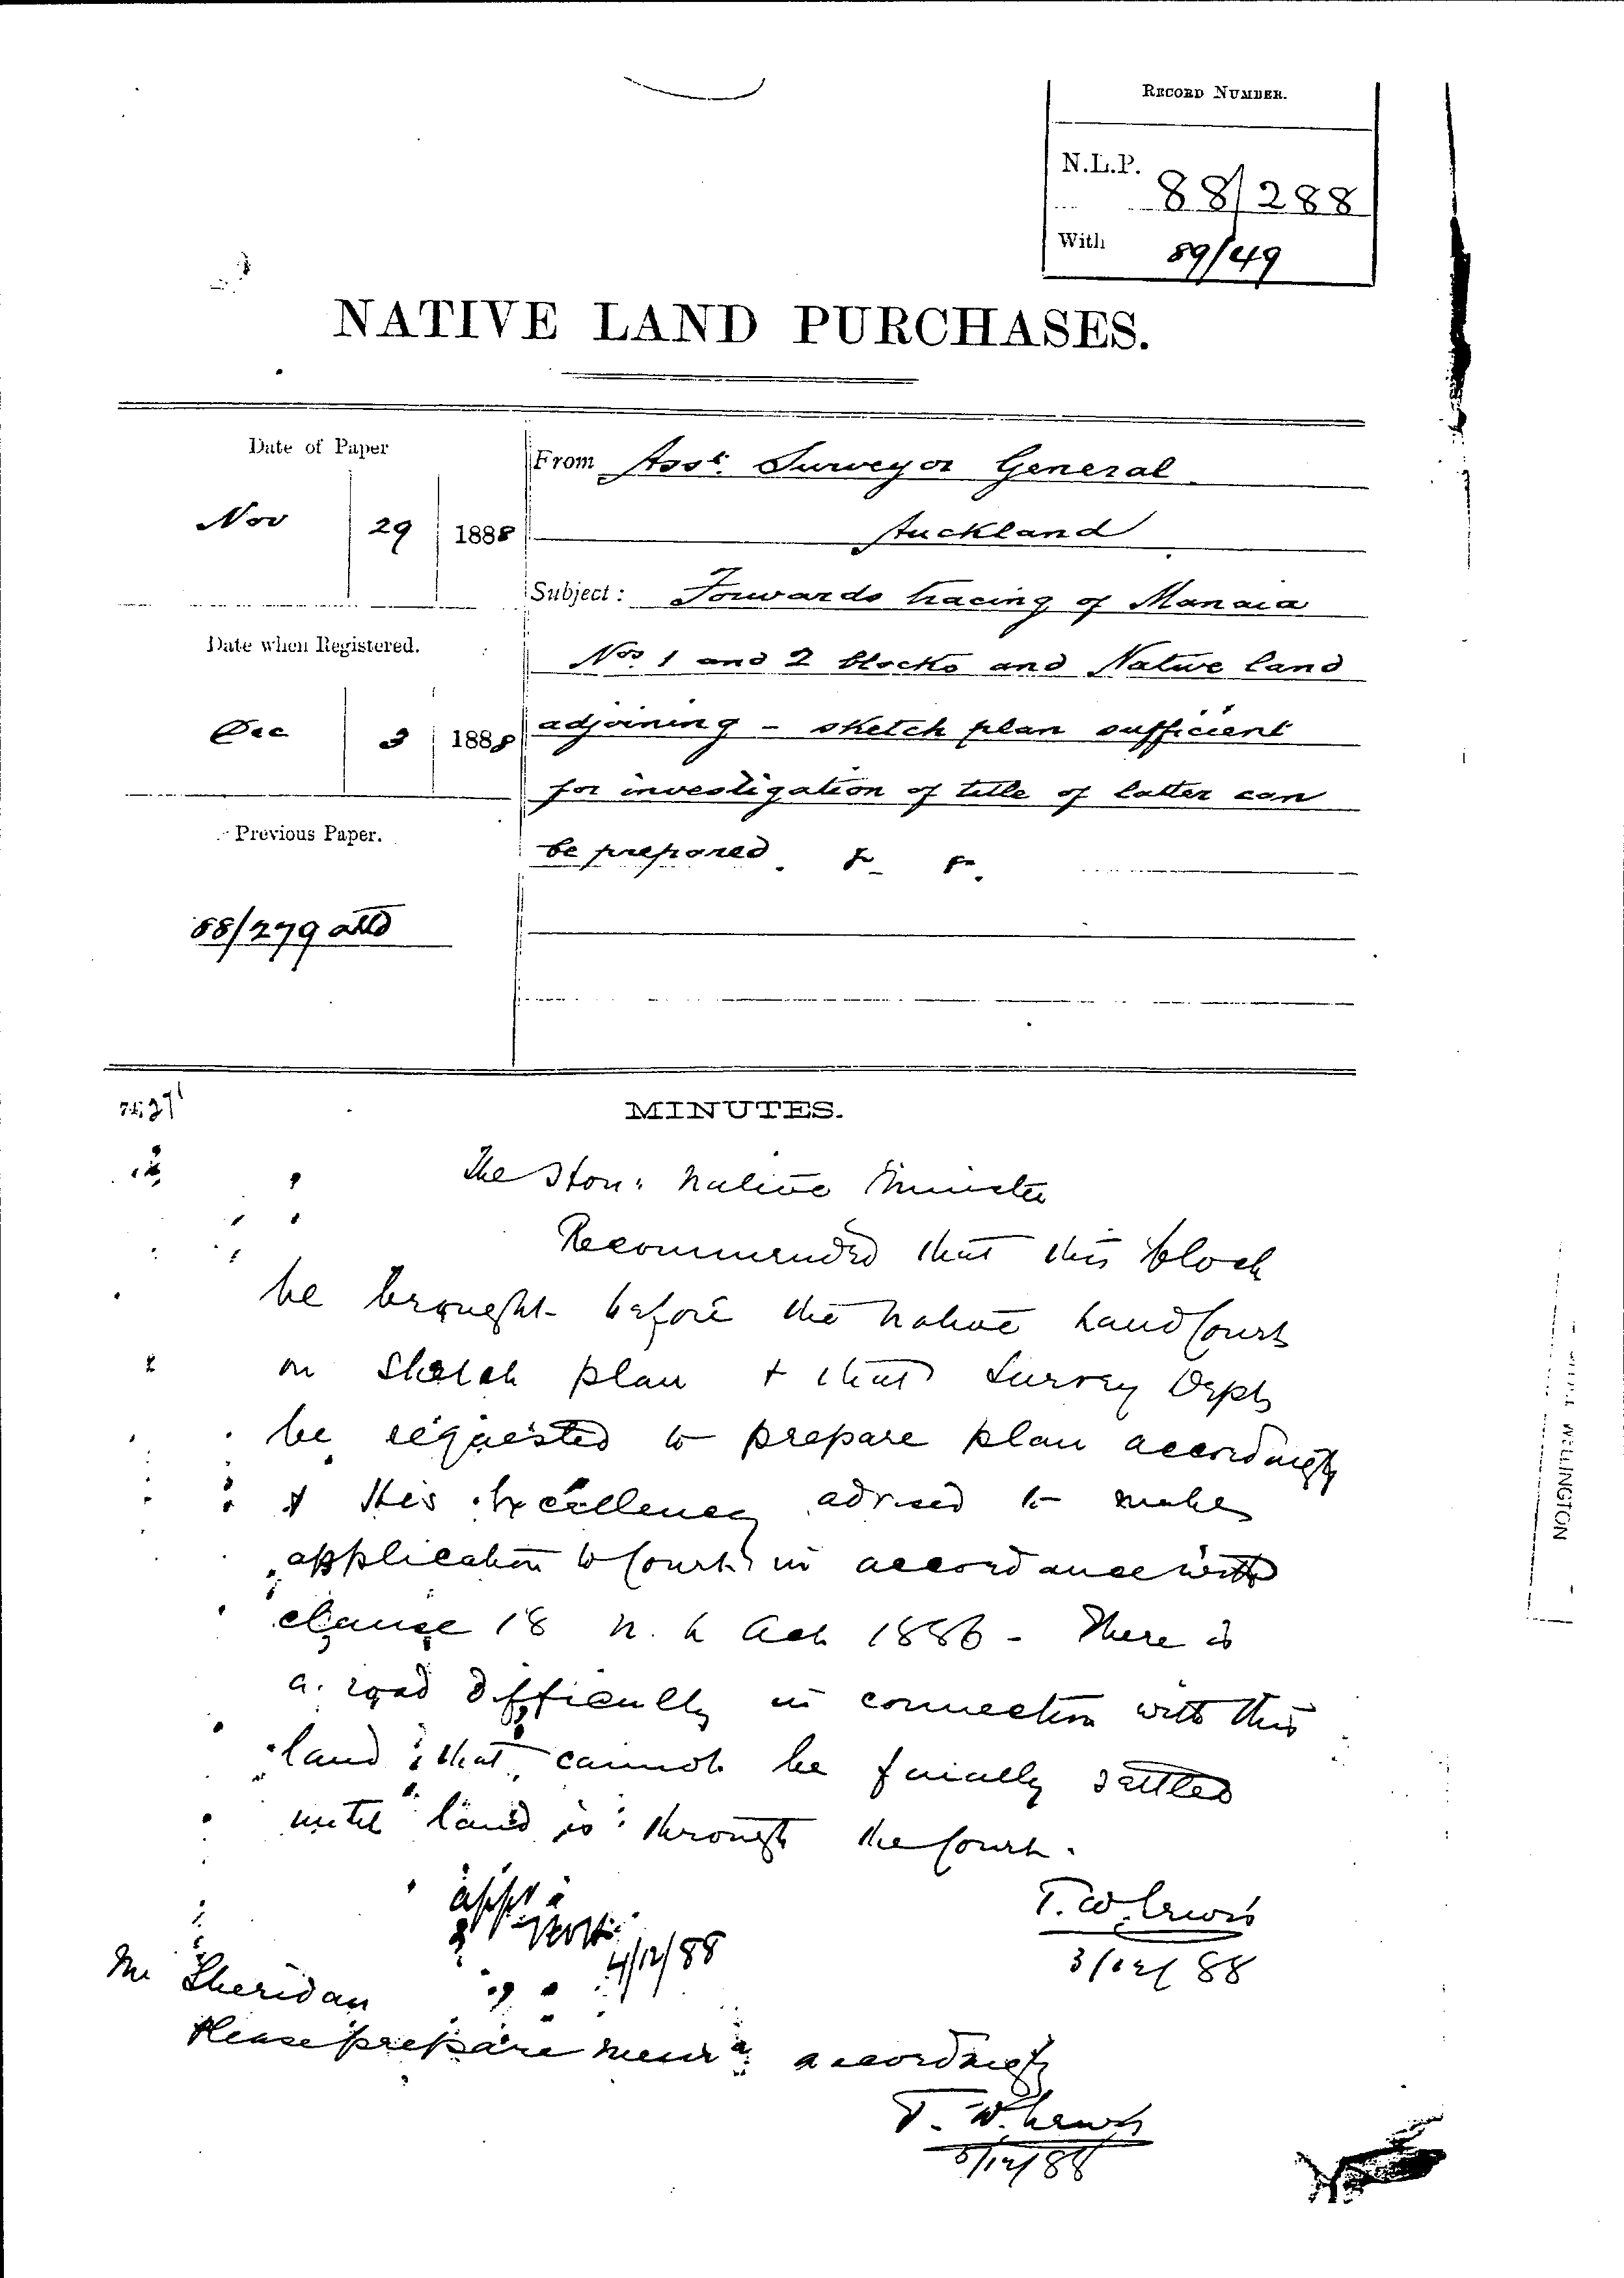 RECORD NUMBER.
N.L.P.
88/288
With 89/49
NATIVE LAND PURCHASES.
Date of Paper
Nov 29 1888
Date when Registered.
Dec 3 1888
Previous Paper.
88/279 attd
From Asst. Surveyor General
Auckland
Subject: Forwards tracing of Manaia
Nos. 1 and 2 blocks and Native land
adjoining - sketch plan sufficient
for investigation of title of latter can
be prepared.
MINUTES.
The Hon: Native Minister
Recommended that this block
be brought before the Native Land Court
on sketch plan + that Survey Dept
be requested to prepare plan accordingly
& His Excellency advised to make
application to Court in accordance with
clause 18 N. L Act 1886 - There is
a road difficulty in connection with this
land that cannot be finally settled
until land is through the Court.
T. W. Lewis
3/12/88
4/12/88
Mr Sheridan
Please prepare accordingly
T. W. Lewis
5/12/88
WELLINGTON